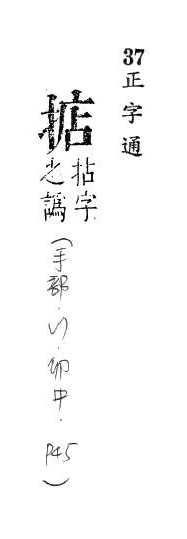 37正字通
掂
拈字
之譌
(手部·八·卯中·P45)